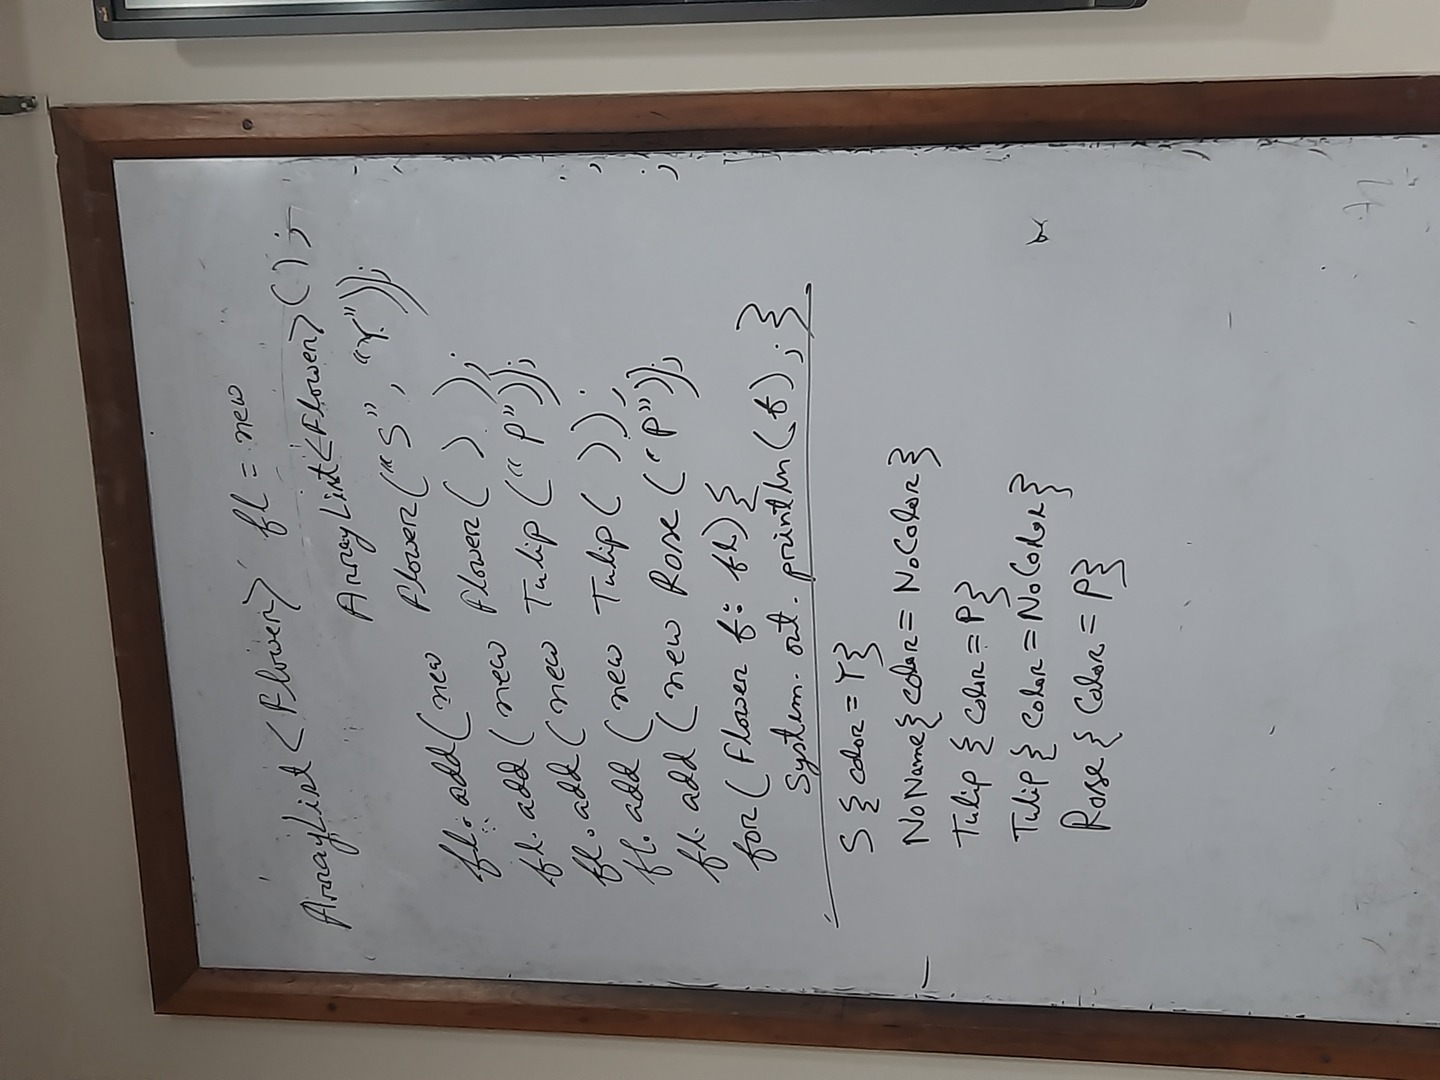 ArrayList<Flower> fl = new
ArrayList<Flower>();
fl.add(new Flower("S", "Y"));
fl.add(new Flower( ) );
fl.add(new Tulip("P"));
fl.add(new Tulip( ));
fl.add(new Rose("P"));
for(Flower f: fl){
System.out.println(f);}
S{color=Y}
NoName{color=NoColor}
Tulip{color=P}
Tulip{color=NoColor}
Rose{Color=P}